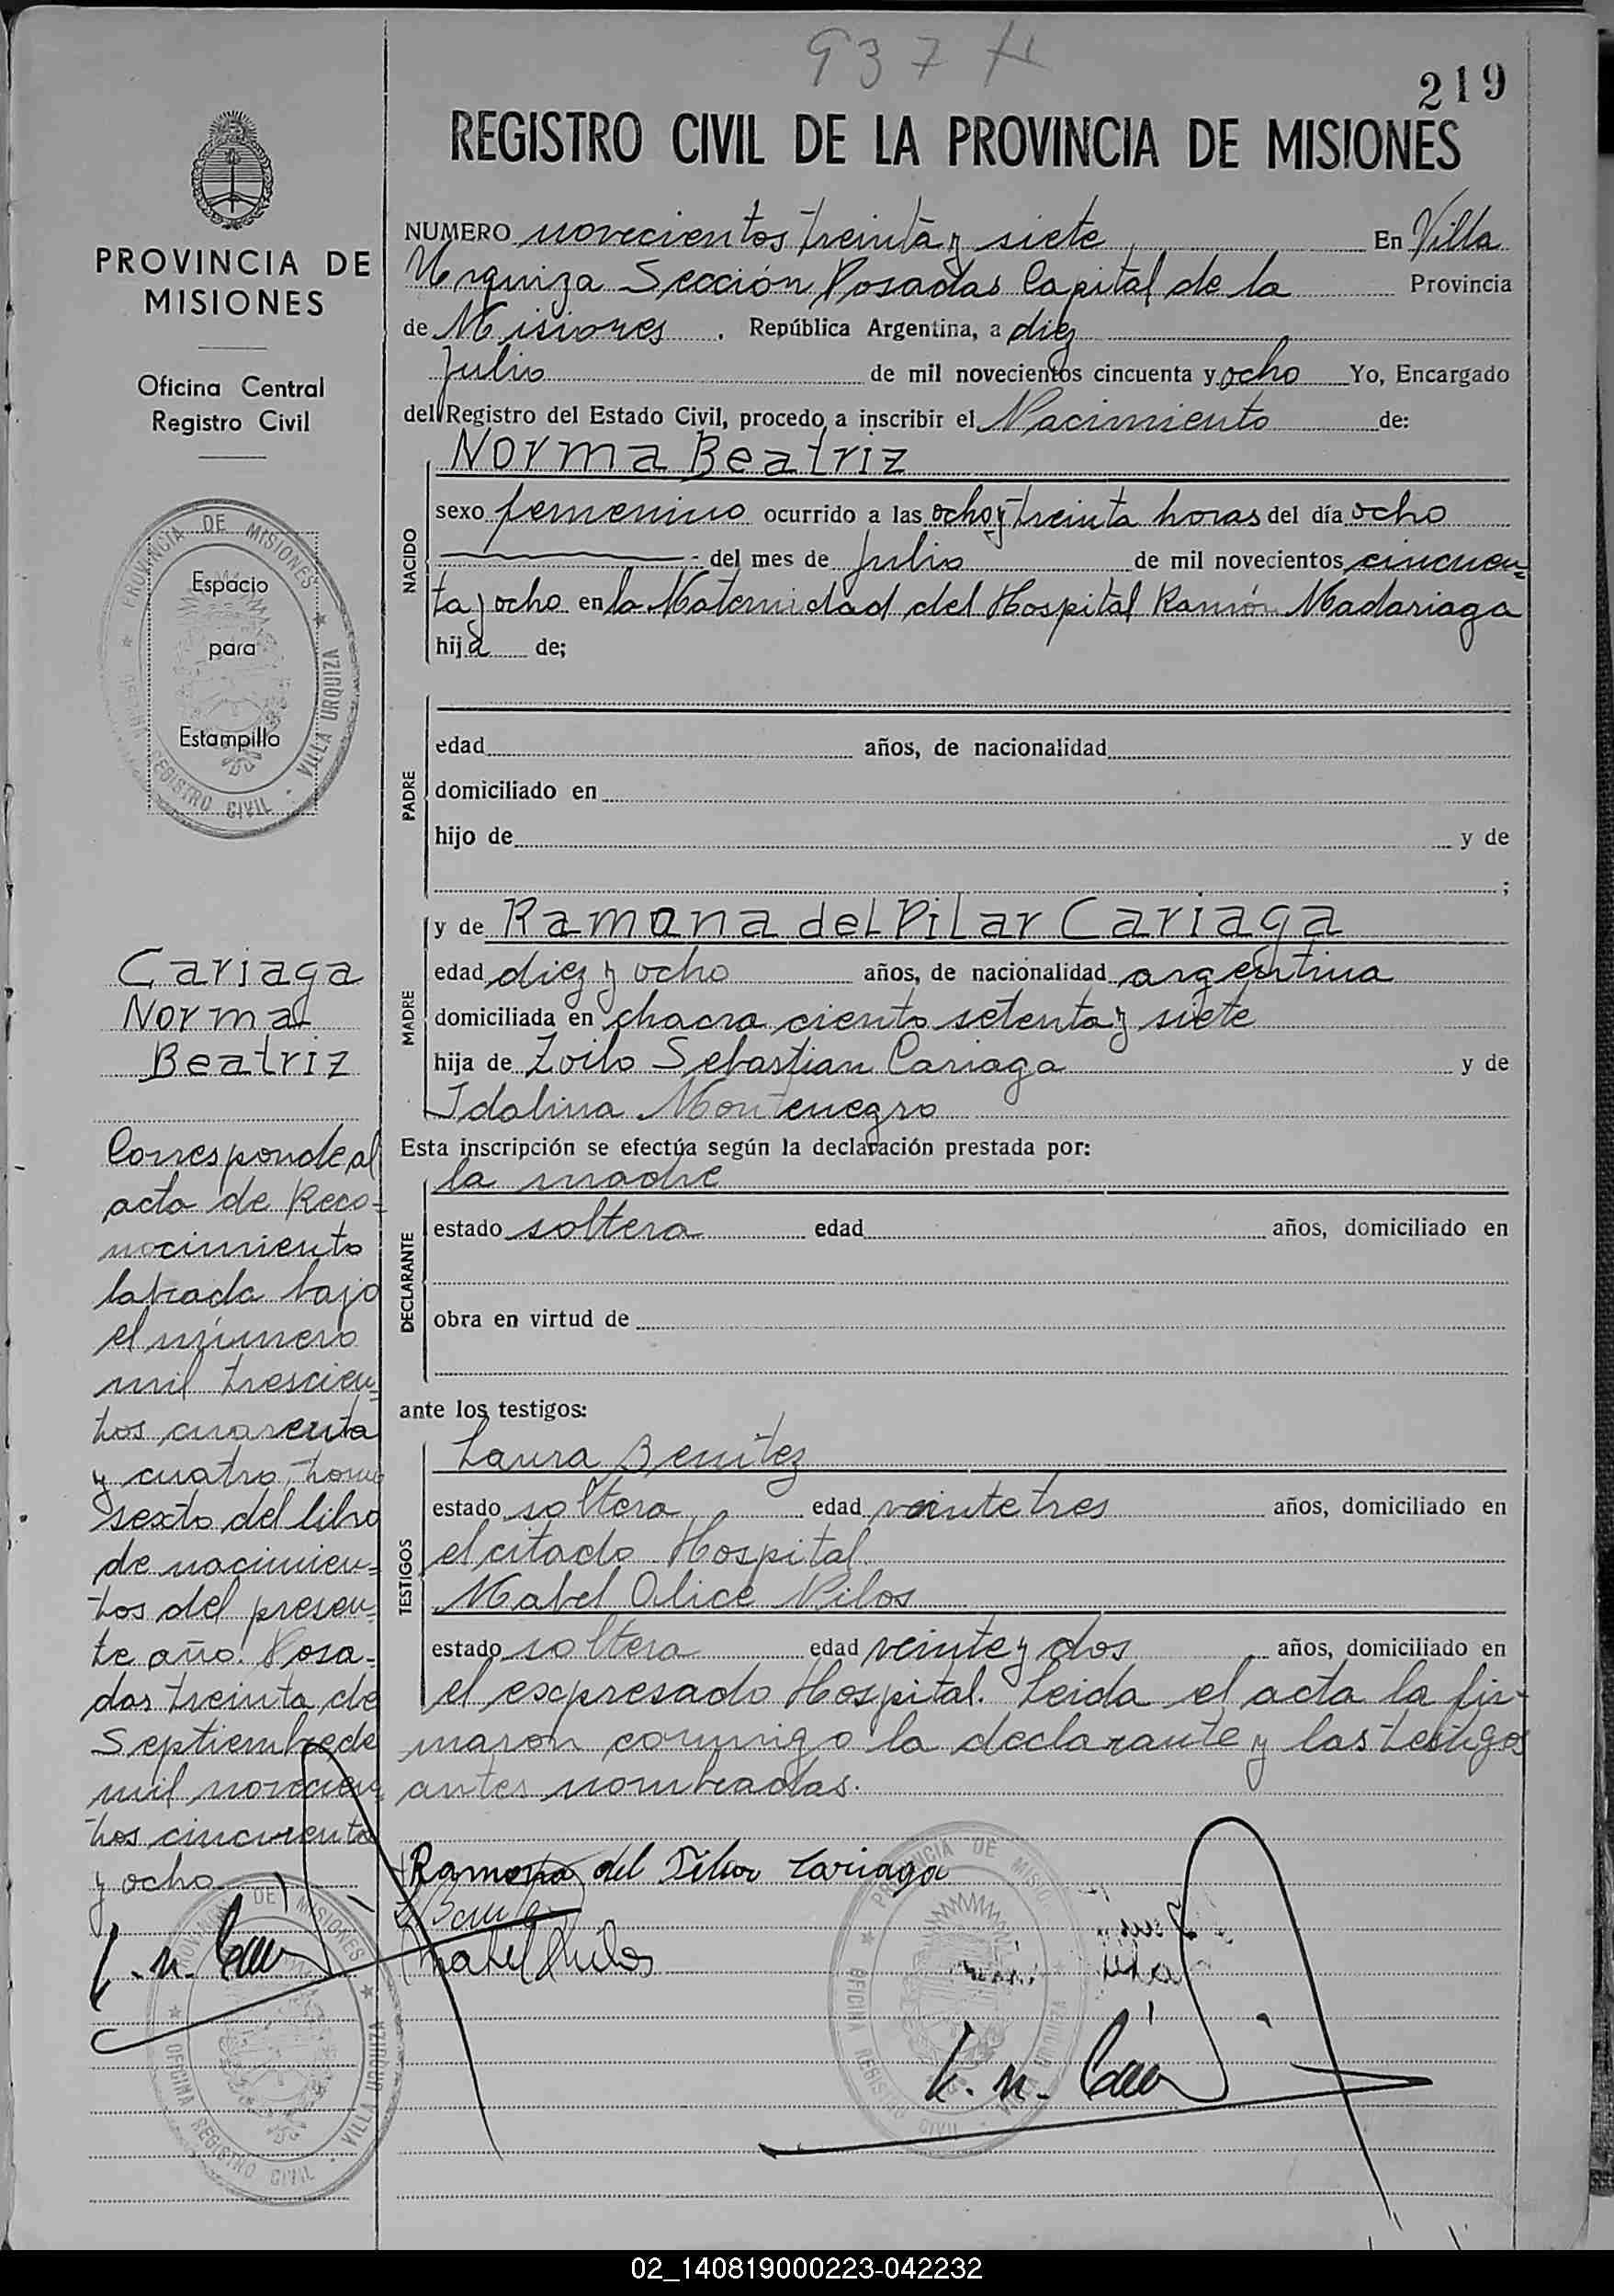 937
219
REGISTRO CIVIL DE LA PROVINCIA DE MISIONES
NUMERO novecientos treinta y siete En Villa
Urquiza Sección Posadas Capital de la Provincia
de Misiones. República Argentina, a diez
Julio de mil novecientos cincuenta y ocho Yo, Encargado
del Registro del Estado Civil, procedo a inscribir el Nacimiento de:
Norma Beatriz
NACIDO
sexo femenino ocurrido a las ocho y treinta horas del día ocho
del mes de Julio de mil novecientos cincuen=
ta y ocho en la Maternidad del Hospital Ramón Madariaga
hija de;
PADRE
edad años, de nacionalidad
domiciliado en
hijo de y de
;
MADRE
y de Ramona del Pilar Cariaga
edad diez y ocho años, de nacionalidad argentina
domiciliada en chacra ciento setenta y siete
hija de Zoilo Sebastian Cariaga y de
Idalina Montenegro
Esta inscripción se efectúa según la declaración prestada por:
DECLARANTE
la madre
estado soltera edad años, domiciliado en
obra en virtud de
ante los testigos:
TESTIGOS
Laura Benitez
estado soltera edad veinte tres años, domiciliado en
el citado Hospital
Mabel Alice Pilos
estado soltera edad veinte y dos años, domiciliado en
el expresado Hospital. Leida el acta la fir-
maron conmigo la declarante y las testigos
antes nombradas.
Ramona del Pilar Cariaga
PROVINCIA DE
MISIONES
Oficina Central
Registro Civil
PROVINCIA DE MISIONES
Espacio
para
Estampilla
VILLA URQUIZA
REGISTRO CIVIL
Cariaga
Norma
Beatriz
Corresponde al
acta de Reco=
nocimiento
labrada bajo
el número
mil trescien=
tos cuarenta
y cuatro, tomo
sexto del libro
de nacimien=
tos del presen=
te año. Posa-
das treinta de
Septiembre de
mil novecien=
tos cincuenta
y ocho
PROVINCIA DE MISIONES
OFICINA REGISTRO CIVIL - VILLA URQUIZA
PROVINCIA DE MISIONES
OFICINA REGISTRO CIVIL - VILLA URQUIZA
02_140819000223-042232